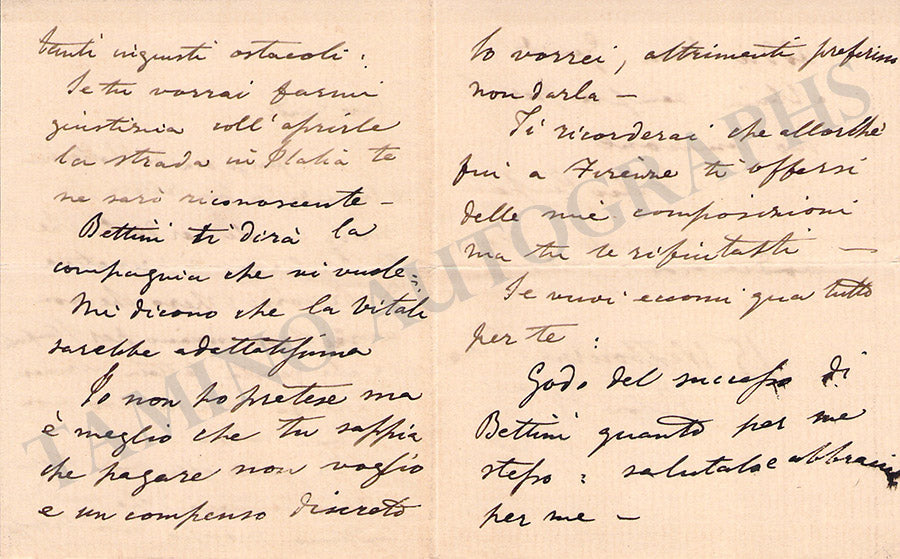 tanti ingiusti ostacoli:
Se tu vorrai farmi
giustizia coll'aprirle
la strada in Italia te
ne sarò riconoscente —
Bettini ti dirà la
compagnia che vi vuole:
Mi dicono che la Vitali
sarebbe adattatissima
Io non ho pretese ma
è meglio che tu sappia
che pagare non voglio
e un compenso discreto
lo vorrei, altrimenti preferisco
non darla —
Ti ricorderai che allorchè
fui a Firenze ti offersi
delle mie composizioni
ma tu le rifiutasti —
Se vuoi eccomi qua tutto
per te:
Godo del successo di
Bettini quanto per me
stesso: salutalo e abbraccialo
per me —
TAMINO AUTOGRAPHS